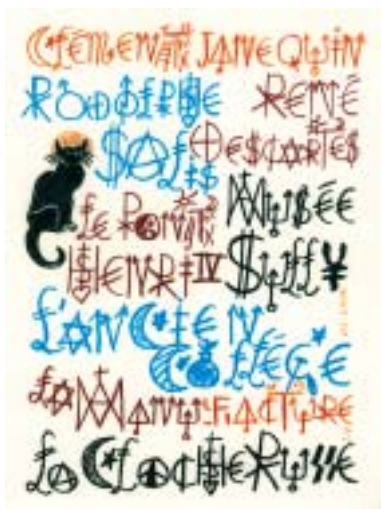 CLÉMENT JANEQUIN
RODOLPHE RENÉ
SALIS DESCARTES
LE PONT MUSÉE
HENRI IV SULLY
L'ANCIEN
COLLÈGE
LA MANUFACTURE
LA CLOCHERUSSE